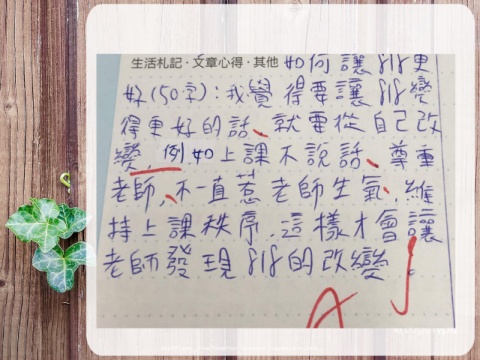 生活札記·文章心得·其他 如何讓818更
好(50字):我覺得要讓818變
得更好的話、就要從自己改
變,例如上課不說話、尊重
老師、不一直惹老師生氣、維
持上課秩序,這樣才會讓
老師發現818的改變。
A